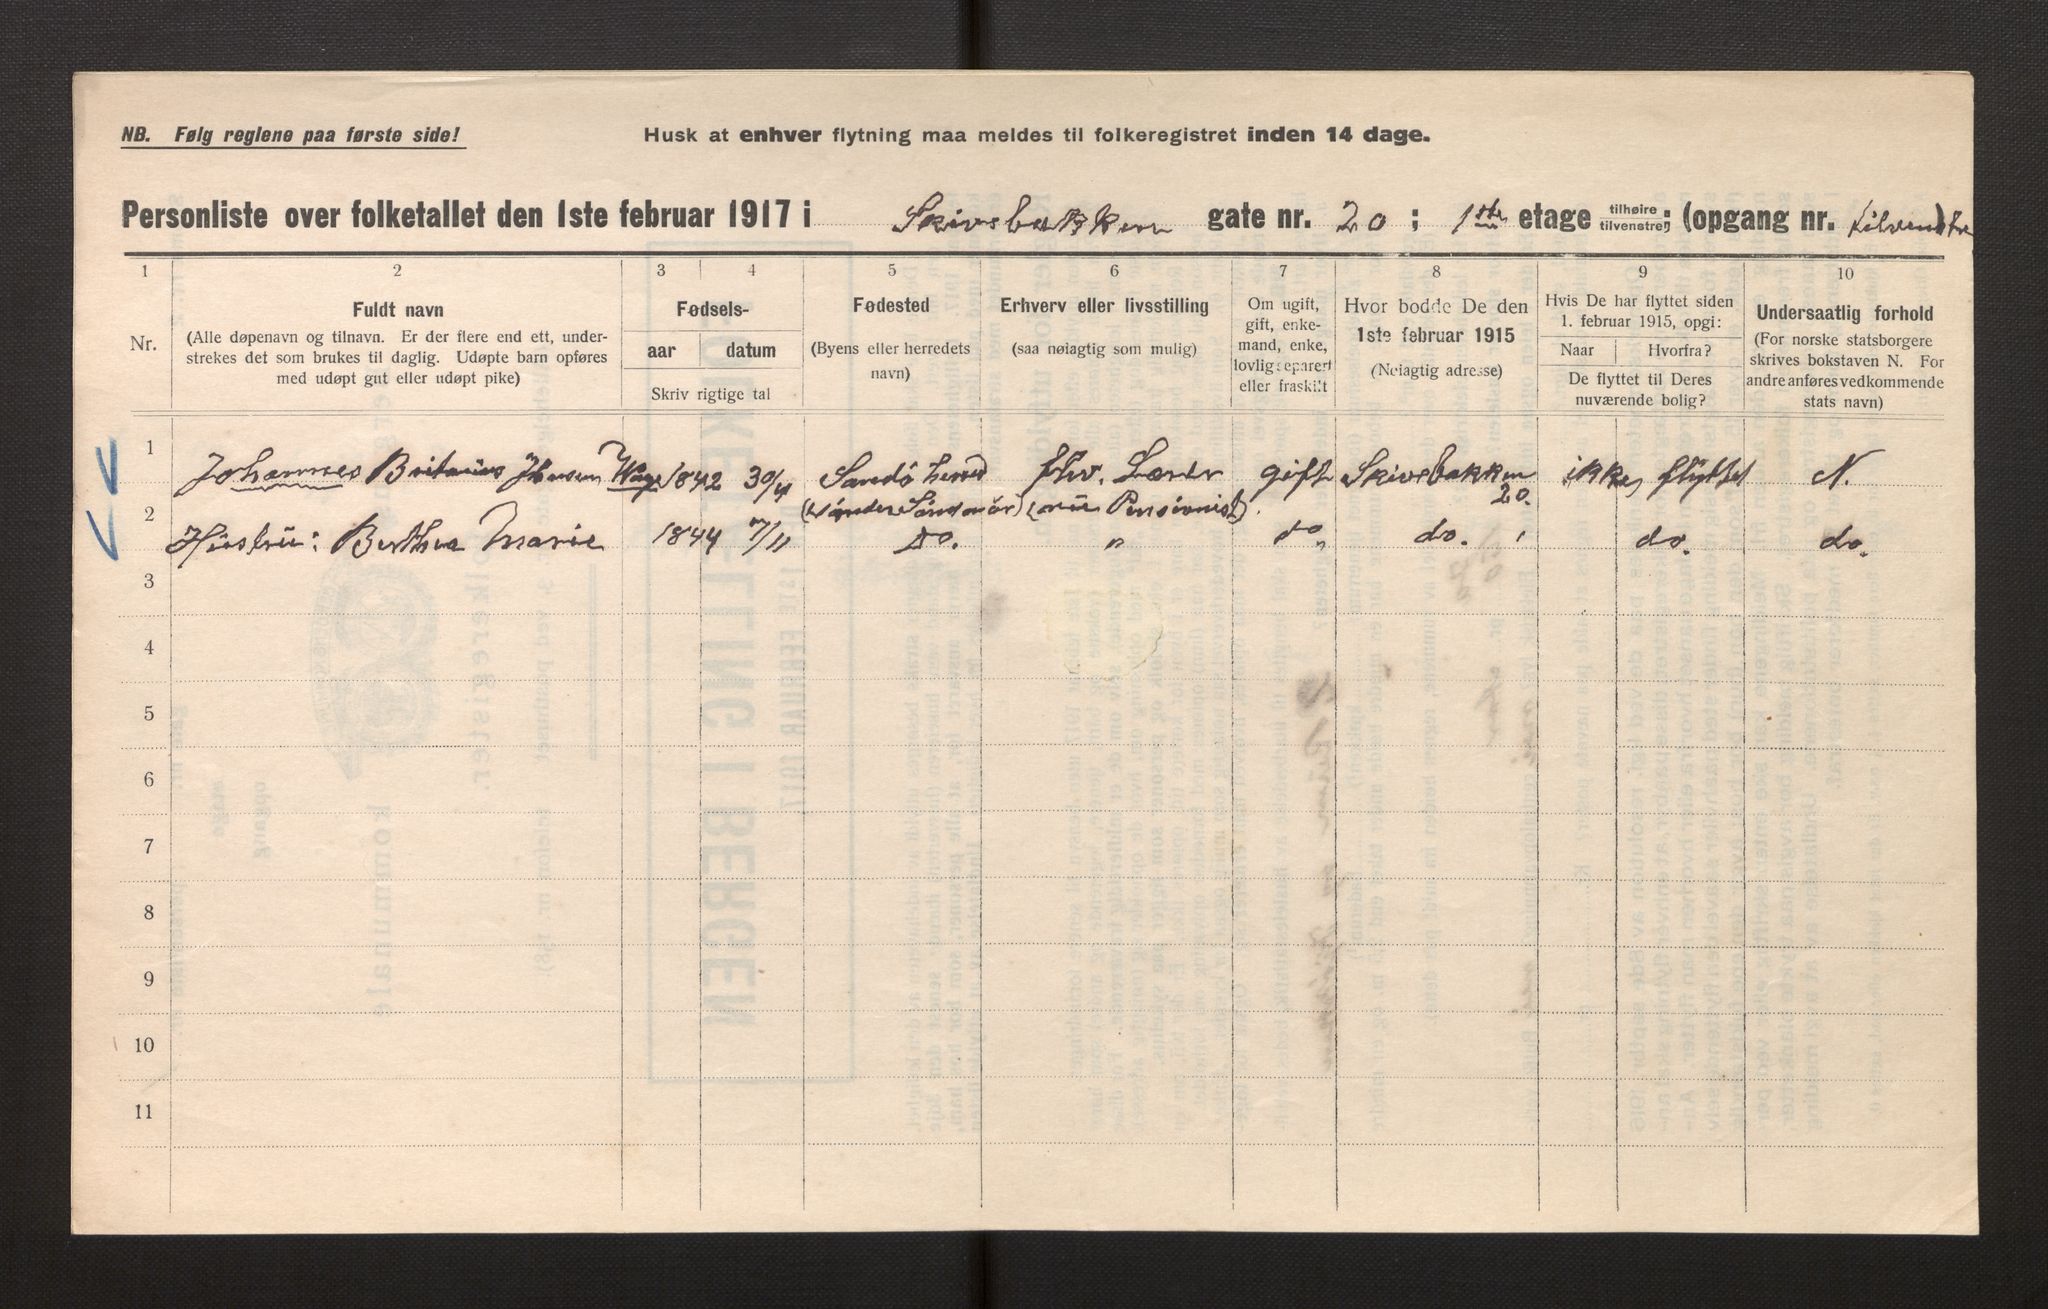 NB. Følg reglene paa første side!
Husk at enhver flytning maa meldes til folkeregistret inden 14 dage.
Personliste over folketallet den 1ste februar 1917 i Skivebakken gate nr. 20 ; 1ste etage tilhøire tilvenstre; (opgang nr. tilvenstre)
1 2 3 4 5 6 7 8 9 10
Nr.
Fuldt navn
(Alle døpenavn og tilnavn. Er der flere end ett, under-
strekes det som brukes til daglig. Udøpte barn opføres
med udøpt gut eller udøpt pike)
Fødsels-
aar datum
Skriv rigtige tal
Fødested
(Byens eller herredets
navn)
Erhverv eller livsstilling
(saa nøiagtig som mulig)
Om ugift,
gift, enke-
mand, enke,
lovlig separert
eller fraskilt
Hvor bodde De den
1ste februar 1915
(Nøiagtig adresse)
Hvis De har flyttet siden
1. februar 1915, opgi:
Naar Hvorfra?
De flyttet til Deres
nuværende bolig?
Undersaatlig forhold
(For norske statsborgere
skrives bokstaven N. For
andre anføres vedkommende
stats navn)
1 Johannes Jensen 1842 30/4 Sandö herred fhv. Lærer gift Skivebakken 20. ikke flyttet N.
(nu Pensionist)
2 Hustru: Berthea Marie 1844 7/11 Do. " do " do. do. do.
3
4
5
6
7
8
9
10
11